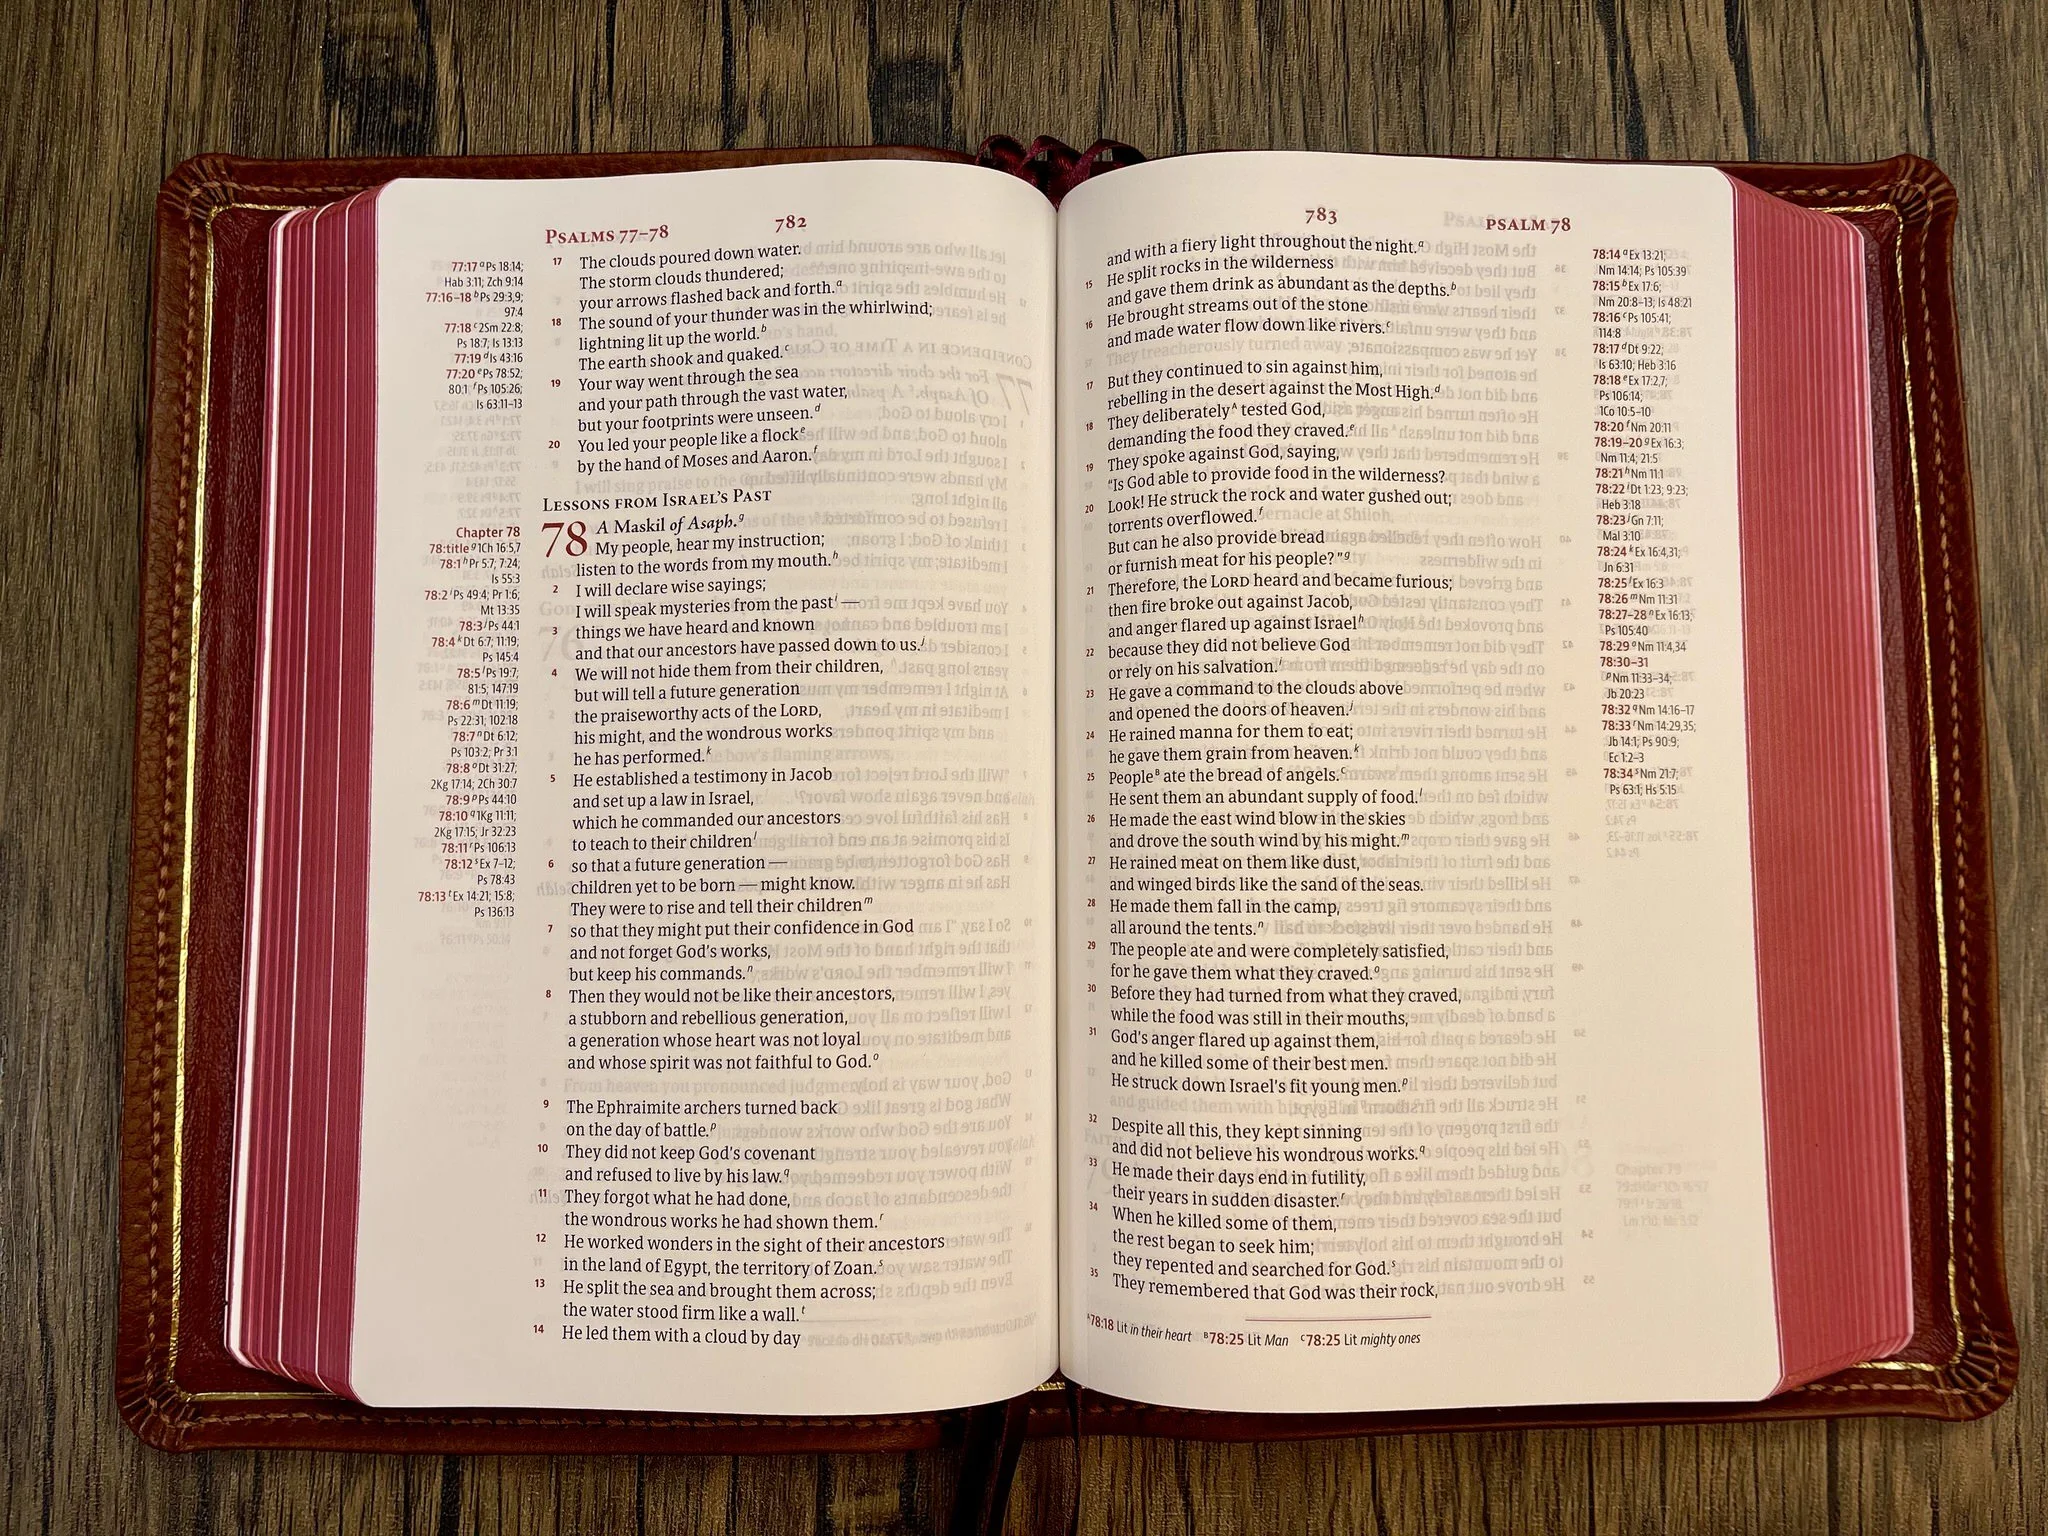 PSALMS 77–78
782
77:17 a Ps 18:14;
Hab 3:11; Zch 9:14
77:16–18 b Ps 29:3,9;
97:4
77:18 c 2Sm 22:8;
Ps 18:7; Is 13:13
77:19 d Is 43:16
77:20 e Ps 78:52;
80:1 f Ps 105:26;
Is 63:11–13
Chapter 78
78:title g 1Ch 16:5,7
78:1 h Pr 5:7; 7:24;
Is 55:3
78:2 i Ps 49:4; Pr 1:6;
Mt 13:35
78:3 j Ps 44:1
78:4 k Dt 6:7; 11:19;
Ps 145:4
78:5 l Ps 19:7;
81:5; 147:19
78:6 m Dt 11:19;
Ps 22:31; 102:18
78:7 n Dt 6:12;
Ps 103:2; Pr 3:1
78:8 o Dt 31:27;
2Kg 17:14; 2Ch 30:7
78:9 p Ps 44:10
78:10 q 1Kg 11:11;
2Kg 17:15; Jr 32:23
78:11 r Ps 106:13
78:12 s Ex 7–12;
Ps 78:43
78:13 t Ex 14:21; 15:8;
Ps 136:13
17 The clouds poured down water.
The storm clouds thundered;
your arrows flashed back and forth.a
18 The sound of your thunder was in the whirlwind;
lightning lit up the world.b
The earth shook and quaked.c
19 Your way went through the sea
and your path through the vast water,
but your footprints were unseen.d
20 You led your people like a flocke
by the hand of Moses and Aaron.f
LESSONS FROM ISRAEL'S PAST
78 A Maskil of Asaph.g
My people, hear my instruction;
listen to the words from my mouth.h
2 I will declare wise sayings;
I will speak mysteries from the pasti —
3 things we have heard and known
and that our ancestors have passed down to us.j
4 We will not hide them from their children,
but will tell a future generation
the praiseworthy acts of the LORD,
his might, and the wondrous works
he has performed.k
5 He established a testimony in Jacob
and set up a law in Israel,
which he commanded our ancestors
to teach to their childrenl
6 so that a future generation —
children yet to be born — might know.
They were to rise and tell their childrenm
7 so that they might put their confidence in God
and not forget God's works,
but keep his commands.n
8 Then they would not be like their ancestors,
a stubborn and rebellious generation,
a generation whose heart was not loyal
and whose spirit was not faithful to God.o
9 The Ephraimite archers turned back
on the day of battle.p
10 They did not keep God's covenant
and refused to live by his law.q
11 They forgot what he had done,
the wondrous works he had shown them.r
12 He worked wonders in the sight of their ancestors
in the land of Egypt, the territory of Zoan.s
13 He split the sea and brought them across;
the water stood firm like a wall.t
14 He led them with a cloud by day
783
PSALM 78
and with a fiery light throughout the night.a
15 He split rocks in the wilderness
and gave them drink as abundant as the depths.b
16 He brought streams out of the stone
and made water flow down like rivers.c
17 But they continued to sin against him,
rebelling in the desert against the Most High.d
18 They deliberatelyA tested God,
demanding the food they craved.e
19 They spoke against God, saying,
"Is God able to provide food in the wilderness?
20 Look! He struck the rock and water gushed out;
torrents overflowed.f
But can he also provide bread
or furnish meat for his people?"g
21 Therefore, the LORD heard and became furious;
then fire broke out against Jacob,
and anger flared up against Israelh
22 because they did not believe God
or rely on his salvation.i
23 He gave a command to the clouds above
and opened the doors of heaven.j
24 He rained manna for them to eat;
he gave them grain from heaven.k
25 PeopleB ate the bread of angels.C
He sent them an abundant supply of food.l
26 He made the east wind blow in the skies
and drove the south wind by his might.m
27 He rained meat on them like dust,
and winged birds like the sand of the seas.
28 He made them fall in the camp,
all around the tents.n
29 The people ate and were completely satisfied,
for he gave them what they craved.o
30 Before they had turned from what they craved,
while the food was still in their mouths,
31 God's anger flared up against them,
and he killed some of their best men.
He struck down Israel's fit young men.p
32 Despite all this, they kept sinning
and did not believe his wondrous works.q
33 He made their days end in futility,
their years in sudden disaster.r
34 When he killed some of them,
the rest began to seek him;
they repented and searched for God.s
35 They remembered that God was their rock,
A 78:18 Lit in their heart B 78:25 Lit Man C 78:25 Lit mighty ones
78:14 a Ex 13:21;
Nm 14:14; Ps 105:39
78:15 b Ex 17:6;
Nm 20:8–13; Is 48:21
78:16 c Ps 105:41;
114:8
78:17 d Dt 9:22;
Is 63:10; Heb 3:16
78:18 e Ex 17:2,7;
Ps 106:14;
1Co 10:5–10
78:20 f Nm 20:11
78:19–20 g Ex 16:3;
Nm 11:4; 21:5
78:21 h Nm 11:1
78:22 i Dt 1:23; 9:23;
Heb 3:18
78:23 j Gn 7:11;
Mal 3:10
78:24 k Ex 16:4,31;
Jn 6:31
78:25 l Ex 16:3
78:26 m Nm 11:31
78:27–28 n Ex 16:13;
Ps 105:40
78:29 o Nm 11:4,34
78:30–31
p Nm 11:33–34;
Jb 20:23
78:32 q Nm 14:16–17
78:33 r Nm 14:29,35;
Jb 14:1; Ps 90:9;
Ec 1:2–3
78:34 s Nm 21:7;
Ps 63:1; Hs 5:15